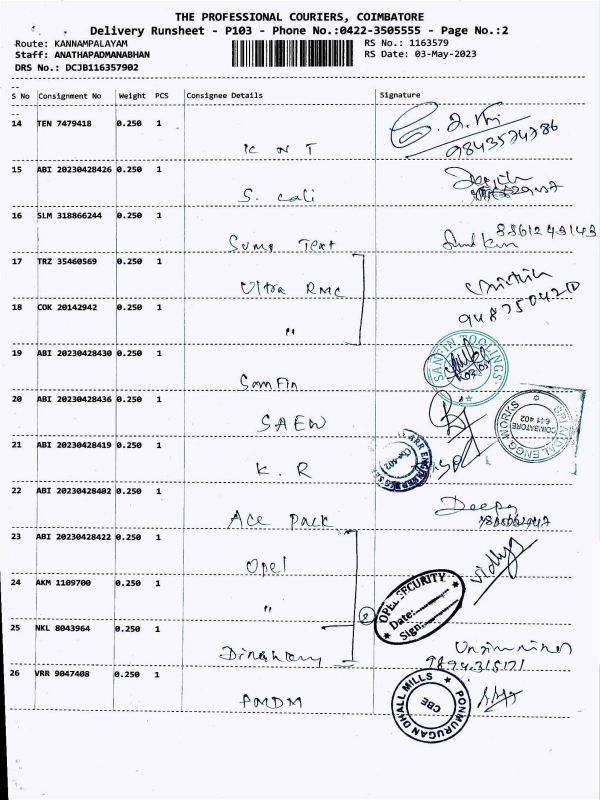 THE PROFESSIONAL COURIERS, COIMBATORE
Delivery Runsheet - P103 - Phone No.:0422-3505555 - Page No.:2
Route: KANNAMPALAYAM RS No.: 1163579
Staff: ANATHAPADMANABHAN RS Date: 03-May-2023
DRS No.: DCJB116357902
S No Consignment No Weight PCS Consignee Details Signature
14 TEN 7479418 0.250 1
9843574786
15 ABI 20230428426 0.250 1
S. Cali
16 SLM 318866244 0.250 1
8861243143
Text
17 TRZ 35460569 0.250 1
Ultra RMC
18 COK 20142942 0.250 1
"
19 ABI 20230428430 0.250 1
SANFIN TOOLINGS
SanFin
20 ABI 20230428436 0.250 1
SAEW
ENGG WORKS
COIMBATORE
641 402
21 ABI 20230428419 0.250 1
K. R
22 ABI 20230428402 0.250 1
Ace Pack
Deepa
23 ABI 20230428422 0.250 1
Opel
Vidhya
24 AKM 1109700 0.250 1
"
OPEL SECURITY
Date:
Sign.
25 NKL 8043964 0.250 1
26 VRR 9047408 0.250 1
PMDM
PONMURUGAN DHALL MILLS
CBE